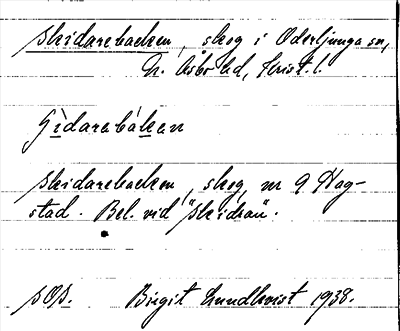 Skidarebacken, skog i Oderljunga sn,
N. Åsbo hd, Krist. l.
Skidarebacken, skog, nr 9 Hag-
stad. Bel. vid "Skidraü".
SOS. Birgit Lundkvist 1938.